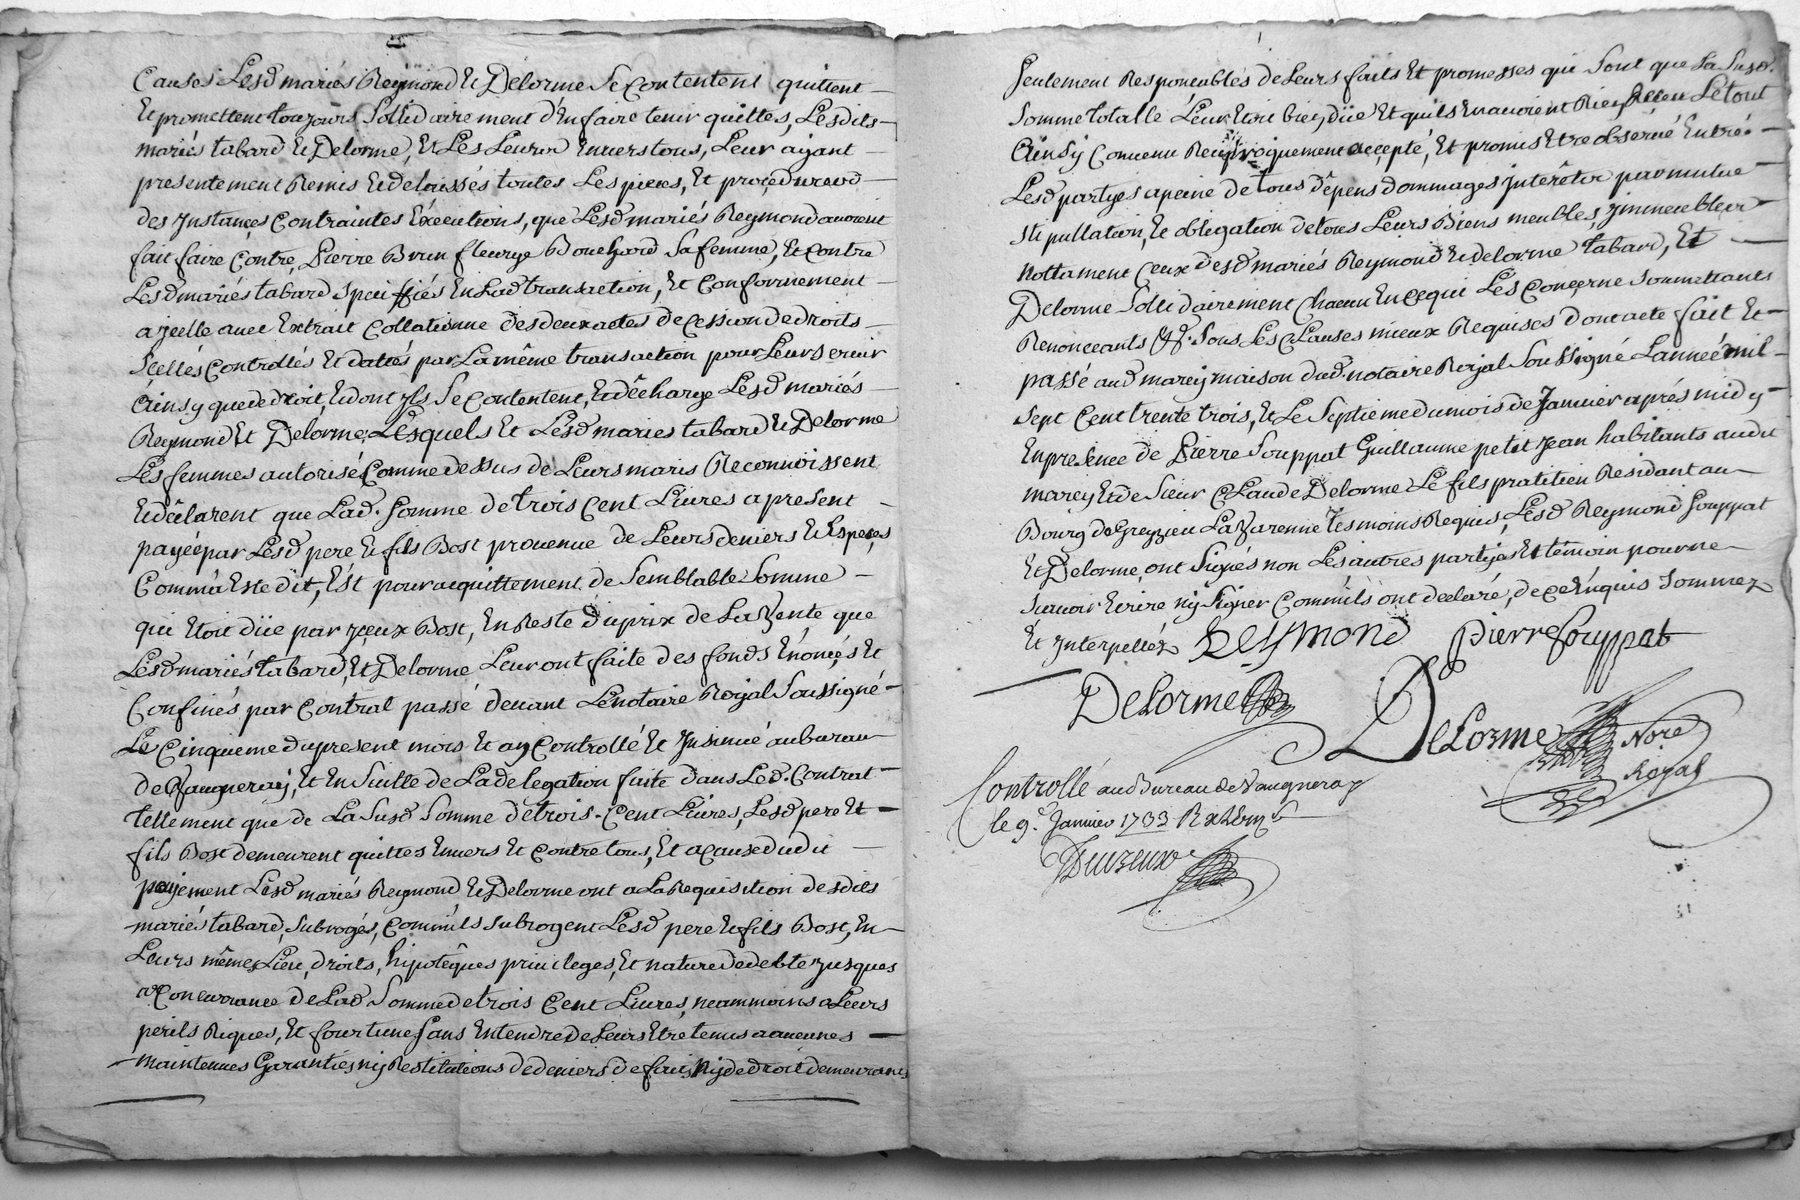 Causes Lesd mariés Reymond Et Delorme Se Contentent quittent
Et promettent toujours Sollidairement d'En faire tenir quittes, Lesdits
mariés tabard Et Delorme, Et Les Leurs Envers tous, Leur ayant
presentement Remis Et delaissés toutes Les pieces, Et procedures
des Instances Contraintes Executions, que Lesd mariés Reymond avoient
fait faire Contre, Pierre Brun fleurye Bouchard Sa femme, Et Contre
Lesd mariés tabard Speciffiés En Lad transaction, Et Conformement
a jcelle avec Extrait Collationne des deux actes de Cession de droits
Scellés Controllés Et dattés par La même transaction pour Leur servir
Ainsy que de droit, Et dont jls Se Contentent, Et décharge Lesd mariés
Reymond Et Delorme, Lesquels Et Lesd maries tabard Et Delorme
Les femmes autorisé Comme dessus de Leurs maris Reconnoissent
Et déclarent que Lad. Somme de trois Cent Livres a present
payée par Lesd pere Et fils Bost provenue de Leurs deniers Et Especes
Comm'a Este dit, Est pour acquittement de Semblable Somme
qui Etoit düe par jceux Bost, En Reste du prix de La Vente que
Lesd mariés tabard, Et Delorme Leur ont faite des fonds Enoncés Et
Confinés par Contrat passé devant Le notaire Royal Soussigné
Le Cinquieme du present mois Et an Controllé Et Insinué au bureau
de Vaugneray, Et En Suitte de La delegation faite dans Led. Contrat
tellement que de La Susd Somme de trois Cent Livres, Lesd pere Et
fils Bost demeurent quittes Envers Et Contre tous, Et a Cause dudit
payement Lesd mariés Reymond Et Delorme ont a La Requisition desdits
mariés tabard, Subrogés, Comm'ils Subrogent Lesd pere Et fils Bost, En
Leurs mêmes Lieu, droits, hipotêques privileges, Et nature de debte jusques
a Concurrance de Lad Somme de trois Cent Livres, neammoins a Leurs
perils Riques, Et fourtune Sans Entendre de Leurs Etre tenus a aucunes
maintenues Garanties ny Restitutions de deniers de fait, Ny de droit demeurants
Seulement Responcables de Leurs faits Et promesses qui Sont que La Susd.
Somme totalle Leur Etoit bien düe Et qu'ils En avoient Rien Reçeu Le tout
Ainsy Convenu Reciproquement accepté, Et promis Etre observé Entre
Lesd partyes a peine de tous dêpens dommages Interêts par mutue
Stipullation, Et obligation de tous Leurs Biens meubles, jmmeubles
nottament Ceux desd mariés Reymond Et delorme tabard, Et
Delorme Sollidairement Chacun En Ce qui Les Concerne Soumettants
Renonceants &. Sous Les Clauses mieux Requises dont acte fait Et
passé aud marcy maison dud. notaire Royal Soussigné L'année mil
Sept Cent trente trois, Et Le Septieme du mois de Janvier aprés midy
En presence de Pierre Souppat Guillaume petit jean habitants audit
marcy Et de Sieur Claude Delorme Le fils pratitien Residant au
Bourg de Grezieu La Varenne Tesmoins Requis, Lesd Reymond Souppat
Et Delorme ont Signés non Les autres partyes Et têmoin pour ne
Scavoir Ecrire ny Signer Comm'ils ont declaré, de Ce Enquis Sommez
Et Interpellés REYMOND Pierre Souppat
Delorme DeLorme Nore
Royal
Controllé au Bureau de Vaugneray
le 9e. Janvier 1733